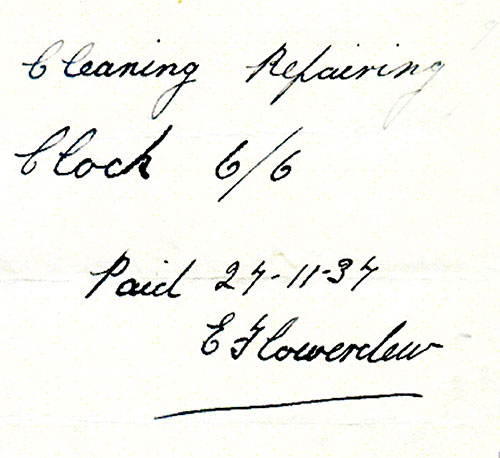 Cleaning Repairing
Clock 6/6
Paid 27-11-37
E Flowerdew